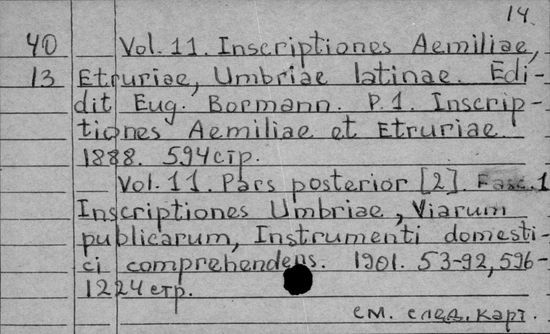 14.
40 Vol. 11. Inscriptiones Aemiliae,
13 Etruriae, Umbriae latinae. Edi-
dit Eug. Bormann. P. 1. Inscrip-
tiones Aemiliae et Etruriae.
1888. 594 стр.
Vol. 11. Pars posterior [2]. Fasc. 1
Inscriptiones Umbriae, Viarum
publicarum, Instrumenti domesti-
ci comprehendens. 1901. 53-92, 596-
1224 стр.
см. след. карт.